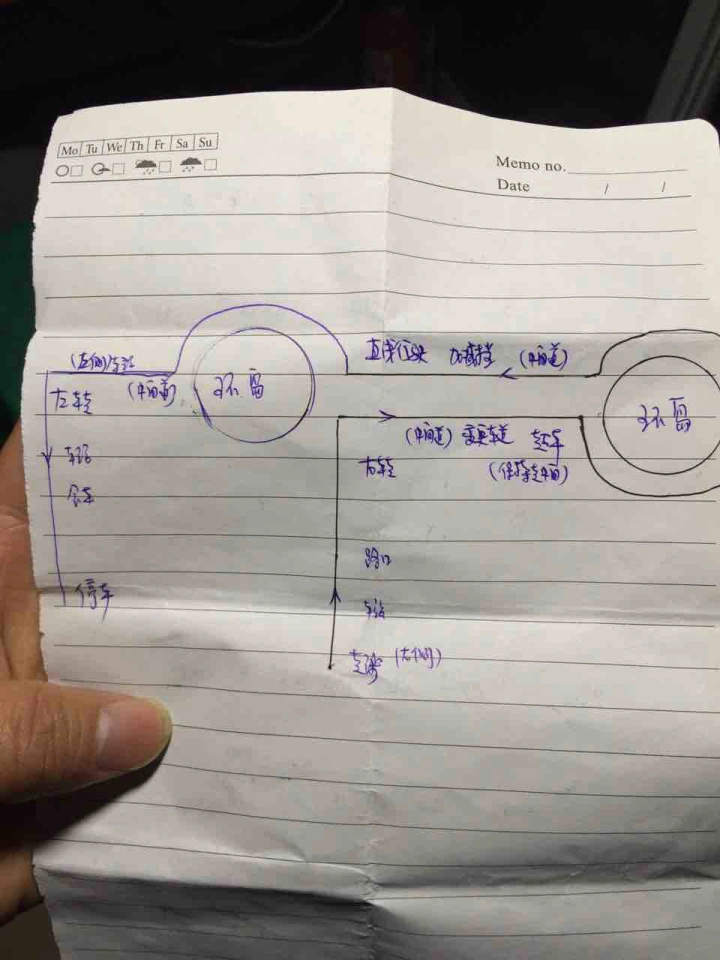 Mo Tu We Th Fr Sa Su
Memo no.
Date / /
(左侧)
直线行驶 加减挡 (中间道)
左转 (中间道) 环岛
环岛
(中间道) 变更车道 超车
车站
右转 (保持走中间)
会车
路口
停车
车站
起步 (右侧)